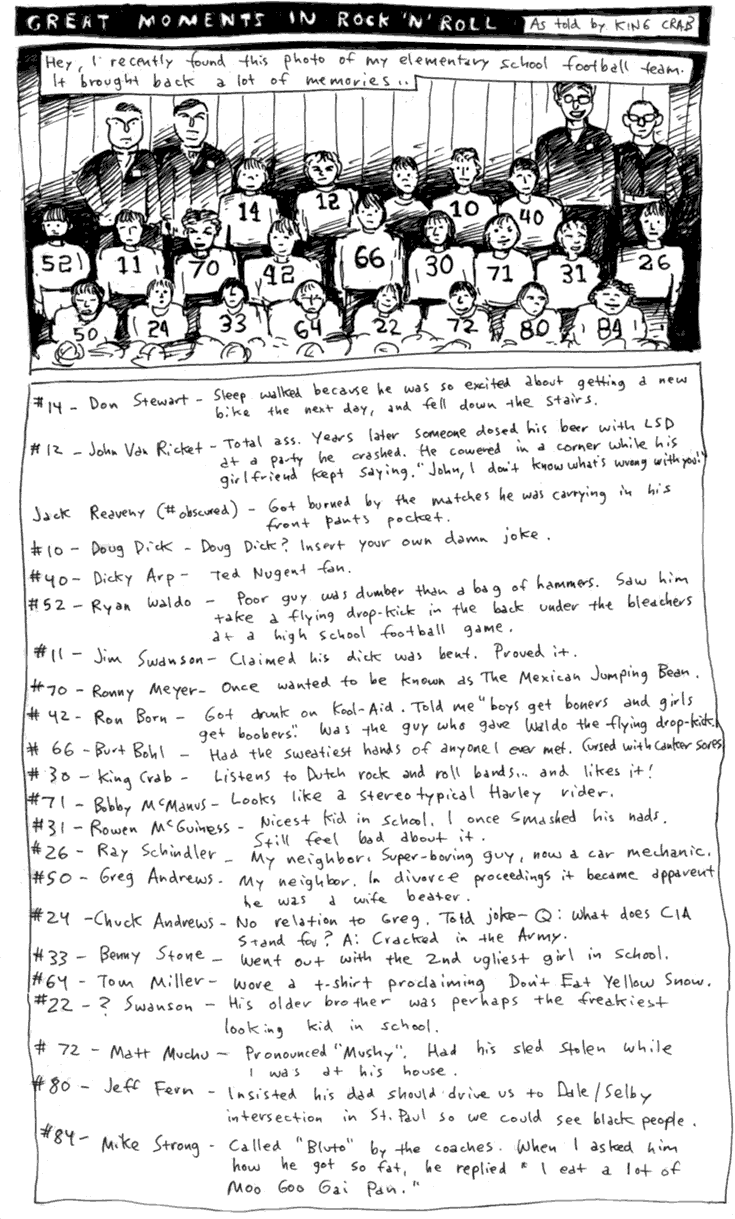 GREAT MOMENTS IN ROCK 'N' ROLL
As told by KING CRAB
Hey, I recently found this photo of my elementary school football team.
It brought back a lot of memories..
14
12
10
40
52
11
70
42
66
30
71
31
26
50
24
33
64
22
72
80
84
#14 - Don Stewart - Sleep walked because he was so excited about getting a new
bike the next day, and fell down the stairs.
#12 - John Van Ricket - Total ass. Years later someone dosed his beer with LSD
at a party he crashed. He cowered in a corner while his
girlfriend kept saying, "John, I don't know what's wrong with you!"
Jack Reaveny (# obscured) - Got burned by the matches he was carrying in his
front pants pocket.
#10 - Doug Dick - Doug Dick? Insert your own damn joke.
#40 - Dicky Arp - Ted Nugent fan.
#52 - Ryan Waldo - Poor guy was dumber than a bag of hammers. Saw him
take a flying drop-kick in the back under the bleachers
at a high school football game.
#11 - Jim Swanson - Claimed his dick was bent. Proved it.
#70 - Ronny Meyer - Once wanted to be known as The Mexican Jumping Bean.
#42 - Ron Born - Got drunk on Kool-Aid. Told me "boys get boners and girls
get boobers". Was the guy who gave Waldo the flying drop-kick.
#66 - Burt Bohl - Had the sweatiest hands of anyone I ever met. Cursed with canker sores
#30 - King Crab - Listens to Dutch rock and roll bands... and likes it!
#71 - Bobby McManus - Looks like a stereotypical Harley rider.
#31 - Rowen McGuiness - Nicest kid in school. I once smashed his nads.
Still feel bad about it.
#26 - Ray Schindler - My neighbor. Super-boring guy, now a car mechanic.
#50 - Greg Andrews - My neighbor. In divorce proceedings it became apparent
he was a wife beater.
#24 - Chuck Andrews - No relation to Greg. Told joke - Q: What does CIA
stand for? A: Cracked in the Army.
#33 - Benny Stone - Went out with the 2nd ugliest girl in school.
#64 - Tom Miller - Wore a t-shirt proclaiming Don't Eat Yellow Snow.
#22 - ? Swanson - His older brother was perhaps the freakiest
looking kid in school.
#72 - Matt Muchu - Pronounced "Mushy". Had his sled stolen while
I was at his house.
#80 - Jeff Fern - Insisted his dad should drive us to Dale/Selby
intersection in St. Paul so we could see black people.
#84 - Mike Strong - Called "Bluto" by the coaches. When I asked him
how he got so fat, he replied "I eat a lot of
Moo Goo Gai Pan."